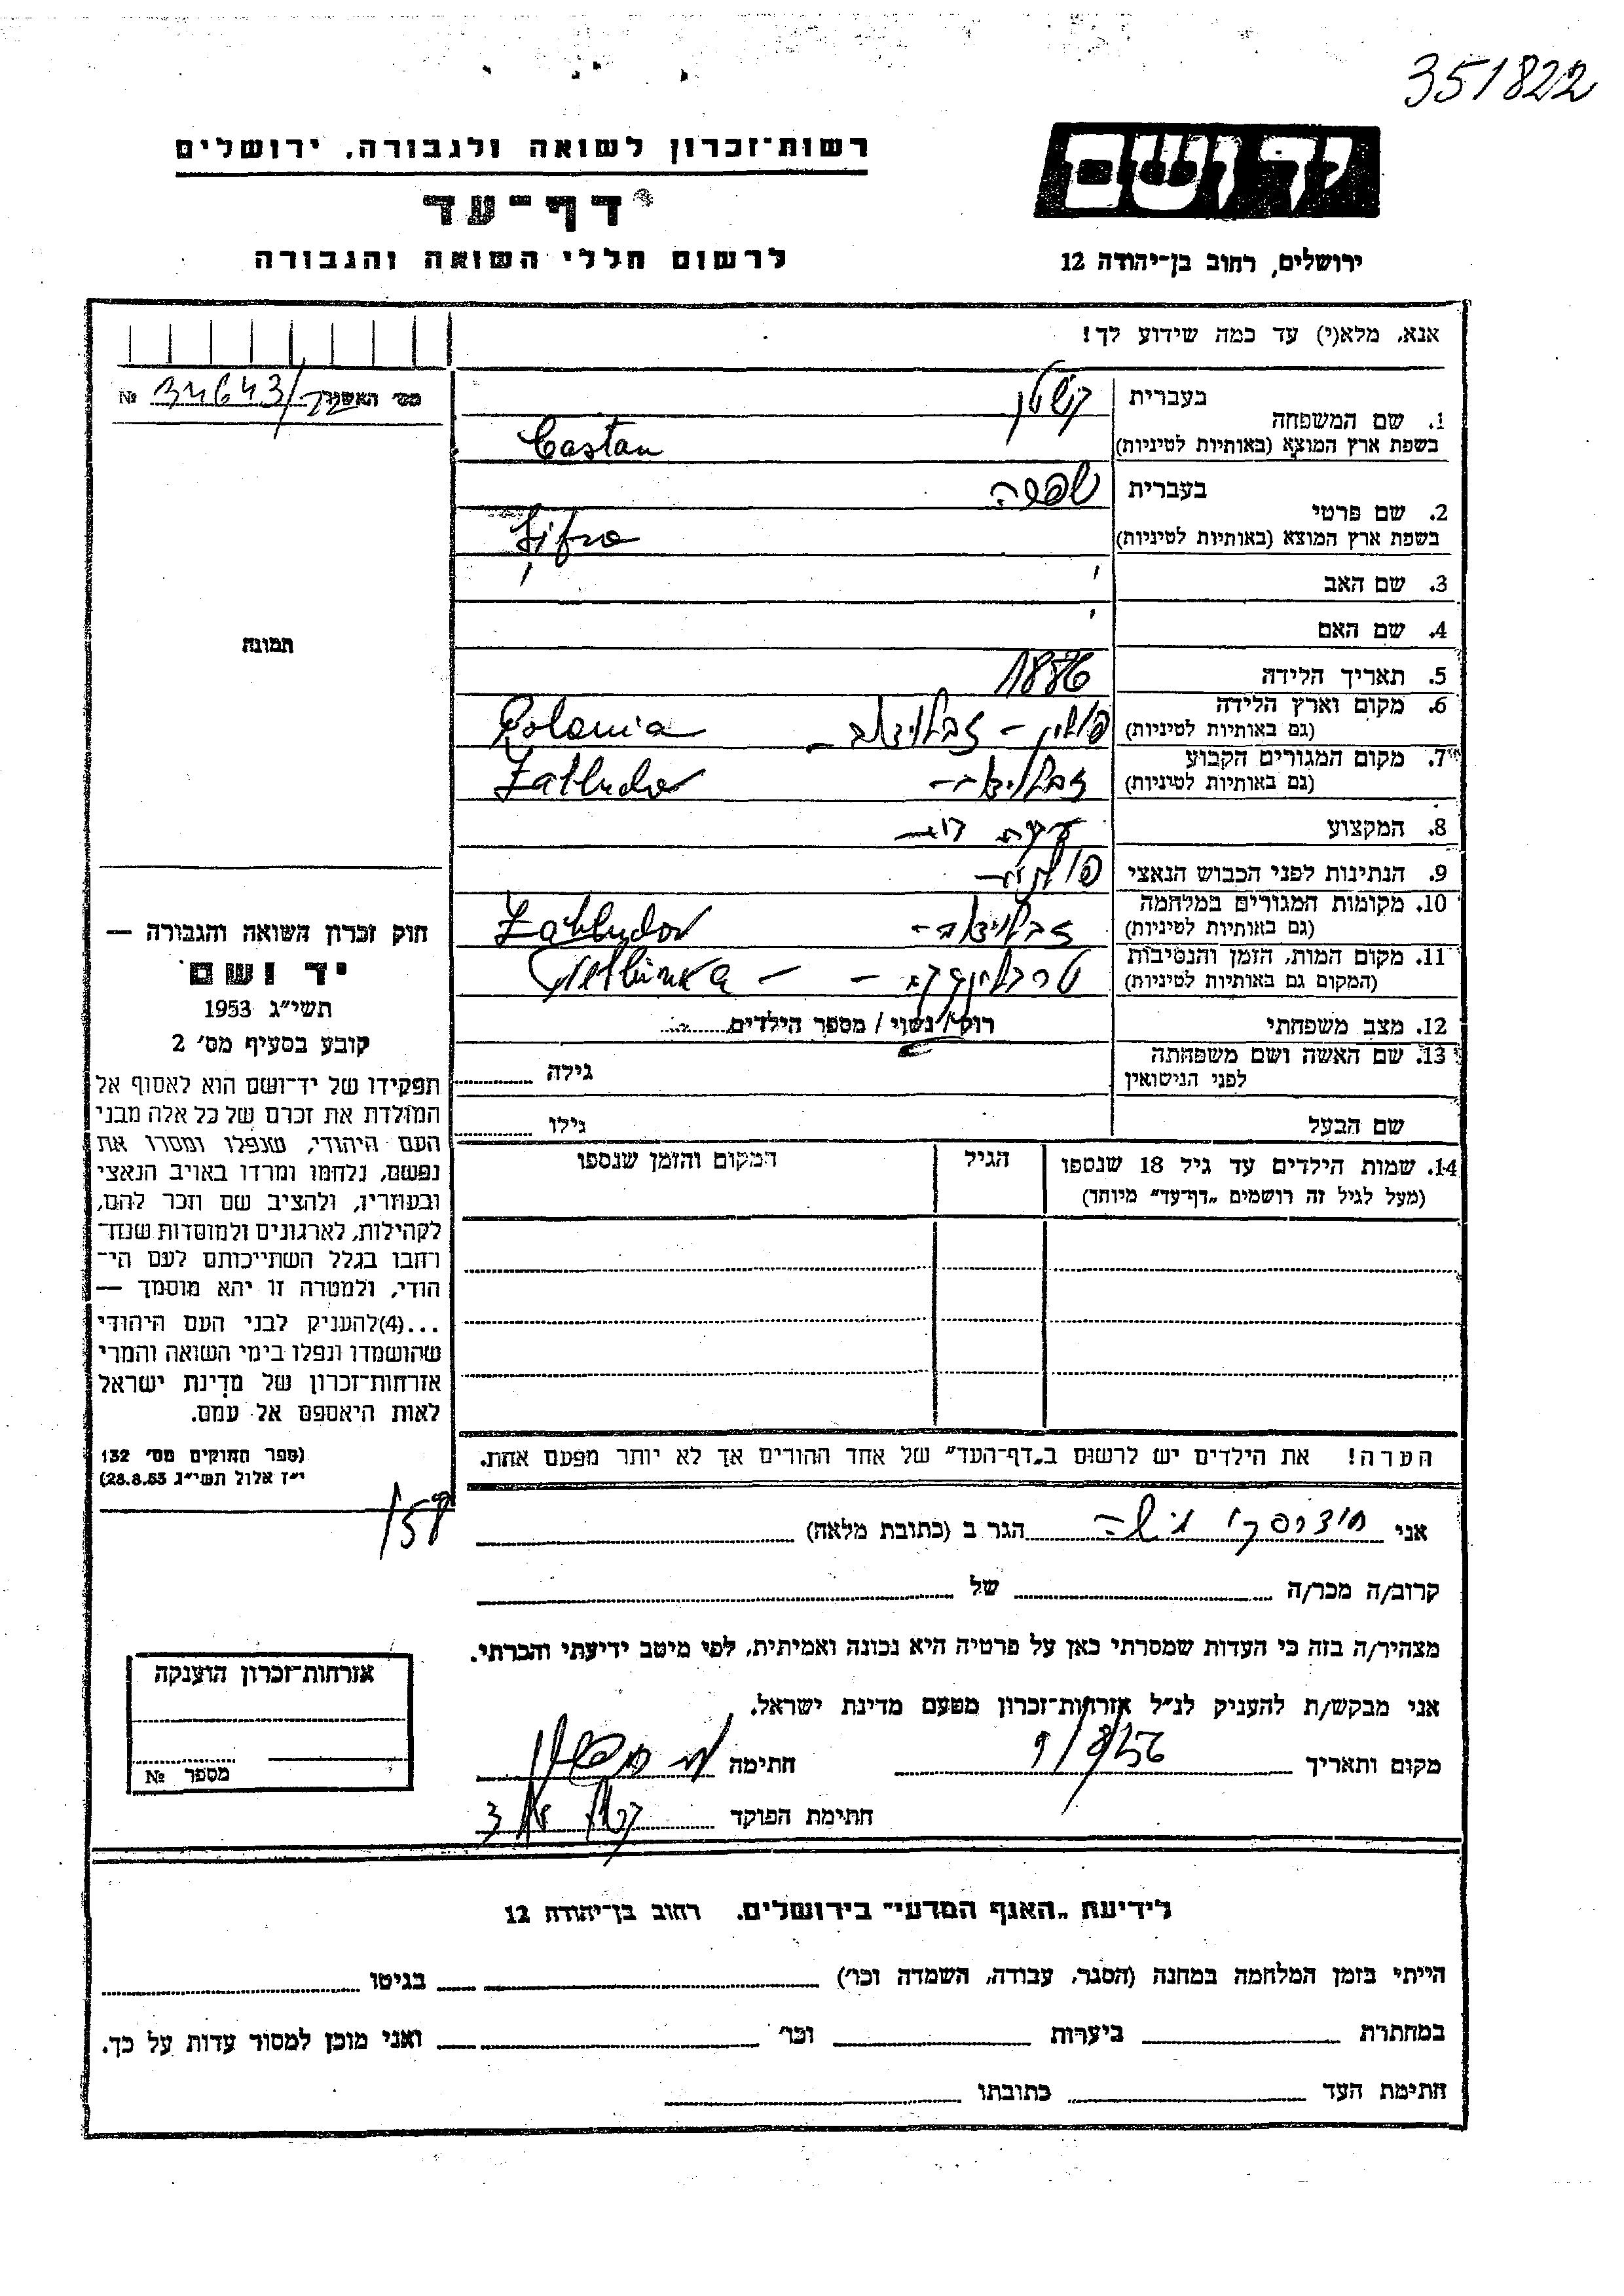 351822
רשות־זכרון לשואה ולגבורה, ירושלים
יד ושם
דף־עד
לרשום חללי השואה והגבורה
ירושלים, רחוב בן־יהודה 12
אנא, מלא(י) עד כמה שידוע לך!
מס׳ האשנב № 34643/22
1. שם המשפחה
בעברית קשטן
בשפת ארץ המוצא (באותיות לטיניות) Castan
2. שם פרטי
בעברית שפרה
בשפת ארץ המוצא (באותיות לטיניות) Zifra
3. שם האב
4. שם האם
תמונה
5. תאריך הלידה 1886
6. מקום וארץ הלידה
(גם באותיות לטיניות) פולין – זבלודוב – Polania
7. מקום המגורים הקבוע
(גם באותיות לטיניות) זבלודוב – Zabludov
8. המקצוע עקרת בית
9. הנתינות לפני הכבוש הנאצי פולנית
10. מקומות המגורים במלחמה
(גם באותיות לטיניות) זבלודוב – Zabludov
11. מקום המות, הזמן והנסיבות
(המקום גם באותיות לטיניות) טרבלינקה – Treblinka
12. מצב משפחתי רוק / נשוי / מספר הילדים
13. שם האשה ושם משפחתה
לפני הנישואין גילה
שם הבעל גילו
14. שמות הילדים עד גיל 18 שנספו הגיל המקום והזמן שנספו
(מעל לגיל זה רושמים „דף־עד” מיוחד)
הערה! את הילדים יש לרשום ב„דף־העד” של אחד ההורים אך לא יותר מפעם אחת.
חוק זכרון השואה והגבורה —
יד ושם
תשי״ג 1953
קובע בסעיף מס׳ 2
תפקידו של יד־ושם הוא לאסוף אל
המולדת את זכרם של כל אלה מבני
העם היהודי, שנפלו ומסרו את
נפשם, נלחמו ומרדו באויב הנאצי
ובעוזריו, ולהציב שם וזכר להם,
לקהילות, לארגונים ולמוסדות שנח־
רחבו בגלל השתייכותם לעם הי־
הודי, ולמטרה זו יהא מוסמך —
...(4)להעניק לבני העם היהודי
שהושמדו ונפלו בימי השואה והמרי
אזרחות־זכרון של מדינת ישראל
לאות היאספם אל עמם.
(ספר החוקים מס׳ 132
י״ז אלול תשי״ג 28.8.53)
158
אני משה הגר ב (כתובת מלאה)
קרוב/ה מכר/ה של
מצהיר/ה בזה כי העדות שמסרתי כאן על פרטיה היא נכונה ואמיתית, לפי מיטב ידיעתי והכרתי.
אני מבקש/ת להעניק לנ״ל אזרחות־זכרון מטעם מדינת ישראל.
מקום ותאריך 9/8/56 חתימה
חתימת הפוקד
אזרחות־זכרון הוענקה
מספר №
לידיעת „האגף המדעי” בירושלים. רחוב בן־יהודה 12
הייתי בזמן המלחמה במחנה (הסגר, עבודה, השמדה וכו׳) בגיטו
במחתרת ביערות וכו׳ ואני מוכן למסור עדות על כך.
חתימת העד כתובתו